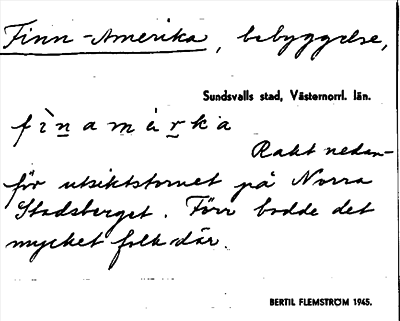 Finn-Amerika, bebyggelse,
Sundsvalls stad, Västernorrl. län.
fìn̲amár̲ka
Rakt nedan-
för utsiktstornet på Norra
Stadsberget. Förr bodde det
mycket folk där.
BERTIL FLEMSTRÖM 1945.